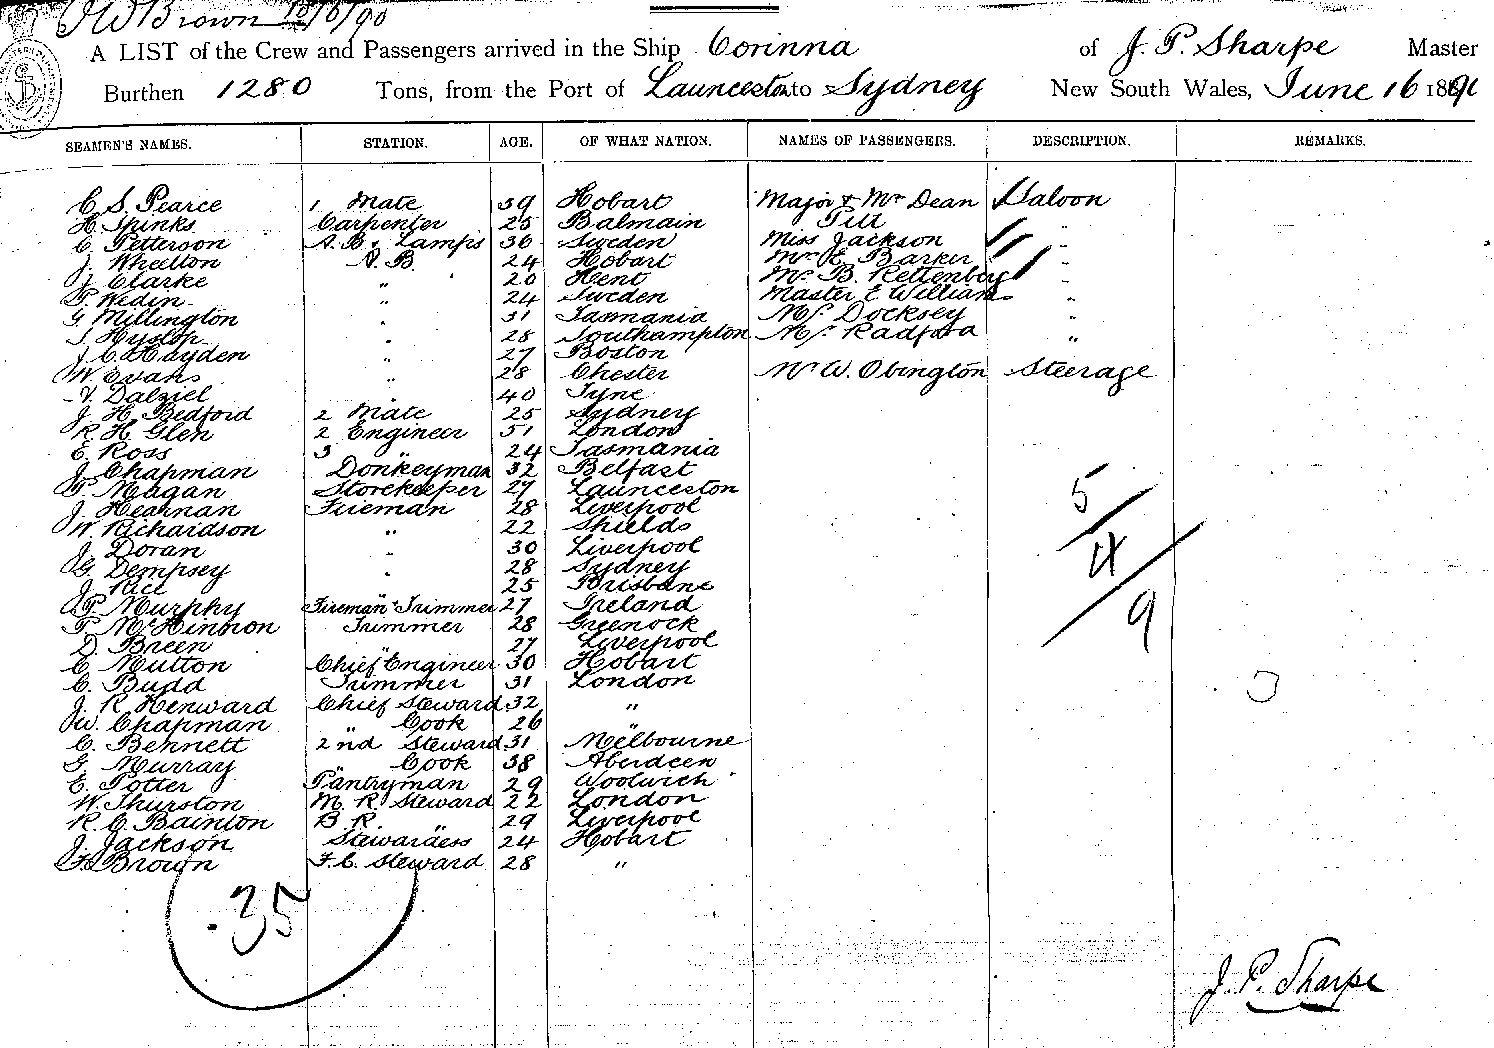 J W Brown 16/6/90
A LIST of the Crew and Passengers arrived in the Ship Corinna of J. P. Sharpe Master
Burthen 1280 Tons, from the Port of Launceston to Sydney New South Wales, June 16 189
SEAMEN'S NAMES. STATION. AGE. OF WHAT NATION. NAMES OF PASSENGERS. DESCRIPTION. REMARKS.
C. S. Pearce 1 Mate 39 Hobart Major & Mrs Dean Saloon
H. Spinks Carpenter 25 Balmain Pitt "
C. Petterson A.B. & Lamps 36 Sweden Miss Jackson "
J. Wheelton A.B. 24 Hobart Mrs E. Barker "
J. Clarke " 20 Kent Mr B. Rettenberg "
P. Wedin " 24 Sweden Master E Williams "
G. Millington " 31 Tasmania Mr Docksey "
J. Hyslop " 28 Southampton Mr Radford "
J. C. Hayden " 27 Boston
W. Evans " 28 Chester Mr W. Obington Steerage
V. Dalziel 40 Tyne
J. H. Bedford 2 Mate 25 Sydney
R. H. Glen 2 Engineer 51 London
E. Ross 3 " 24 Tasmania
J. Chapman Donkeyman 32 Belfast
P. Magan Storekeeper 27 Launceston
J. Hearnan Fireman 28 Liverpool
W. Richardson " 22 Shields
J. Doran " 30 Liverpool
G. Dempsey " 28 Sydney
J. Rice 25 Brisbane
P. Murphy Fireman & Trimmer 27 Ireland
P. McKinnon Trimmer 28 Greenock
D. Breen " 27 Liverpool
C. Mutton Chief Engineer 30 Hobart
C. Budd Trimmer 31 London
J. R. Henward Chief Steward 32 "
W. Chapman " Cook 26 "
C. Bennett 2nd Steward 31 Melbourne
G. Murray " Cook 38 Aberdeen
E. Potter Pantryman 29 Woolwich
W. Thurston M. R. Steward 22 London
R. C. Bainton B. R. " 29 Liverpool
J. Jackson Stewardess 24 Hobart
F. Brown F. C. Steward 28 "
5
4
9
35
J. P. Sharpe